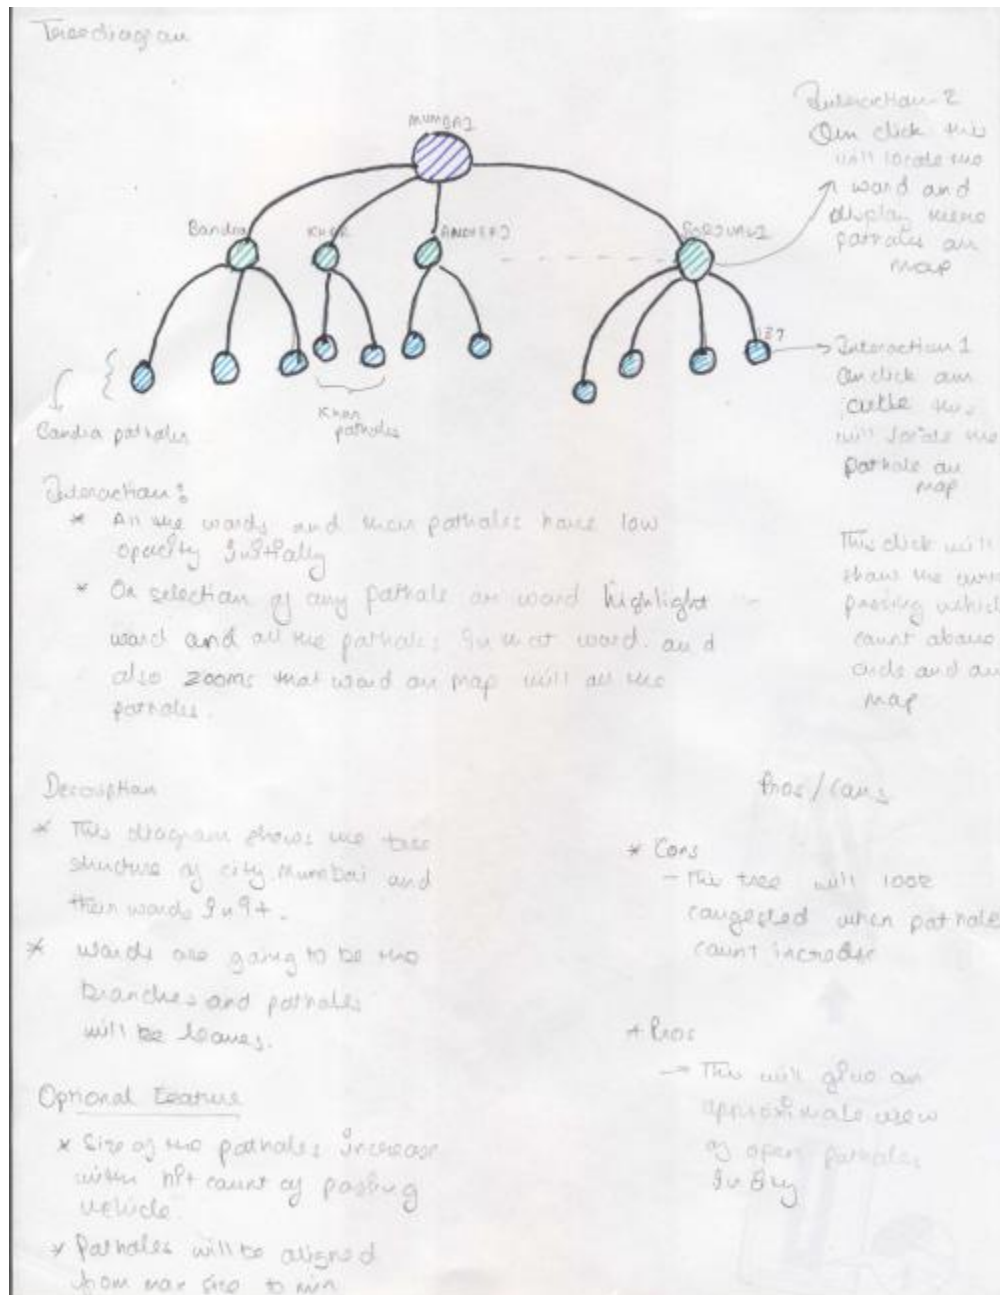 Tree diagram
MUMBAI
Bandra
KHAR
ANDHERI
BORIVALI
Interaction 2
On click this
will locate the
ward and
display
potholes on
map
127
Interaction 1
On click on
circle this
will locate the
Pothole on
map
This click will
show the
passing vehicl
count above
circle and on
map
Bandra potholes
Khar
potholes
Interaction :
* All the wards and their potholes have low
opacity Initially
* On selection of any pothole or ward highlight
ward and all the potholes In that ward. and
also zooms that ward on map with all the
potholes.
Description
* This diagram shows the tree
structure of city Mumbai and
their wards In it.
* Wards are going to be the
branches and potholes
will be leaves.
Optional Feature
* Size of the potholes Increase
with hit count of passing
vehicle.
* Potholes will be aligned
from max size to min
Pros / Cons
* Cons
- This tree will look
congested when pothole
count increase
+ Pros
→ This will give an
approximate view
of open potholes
In